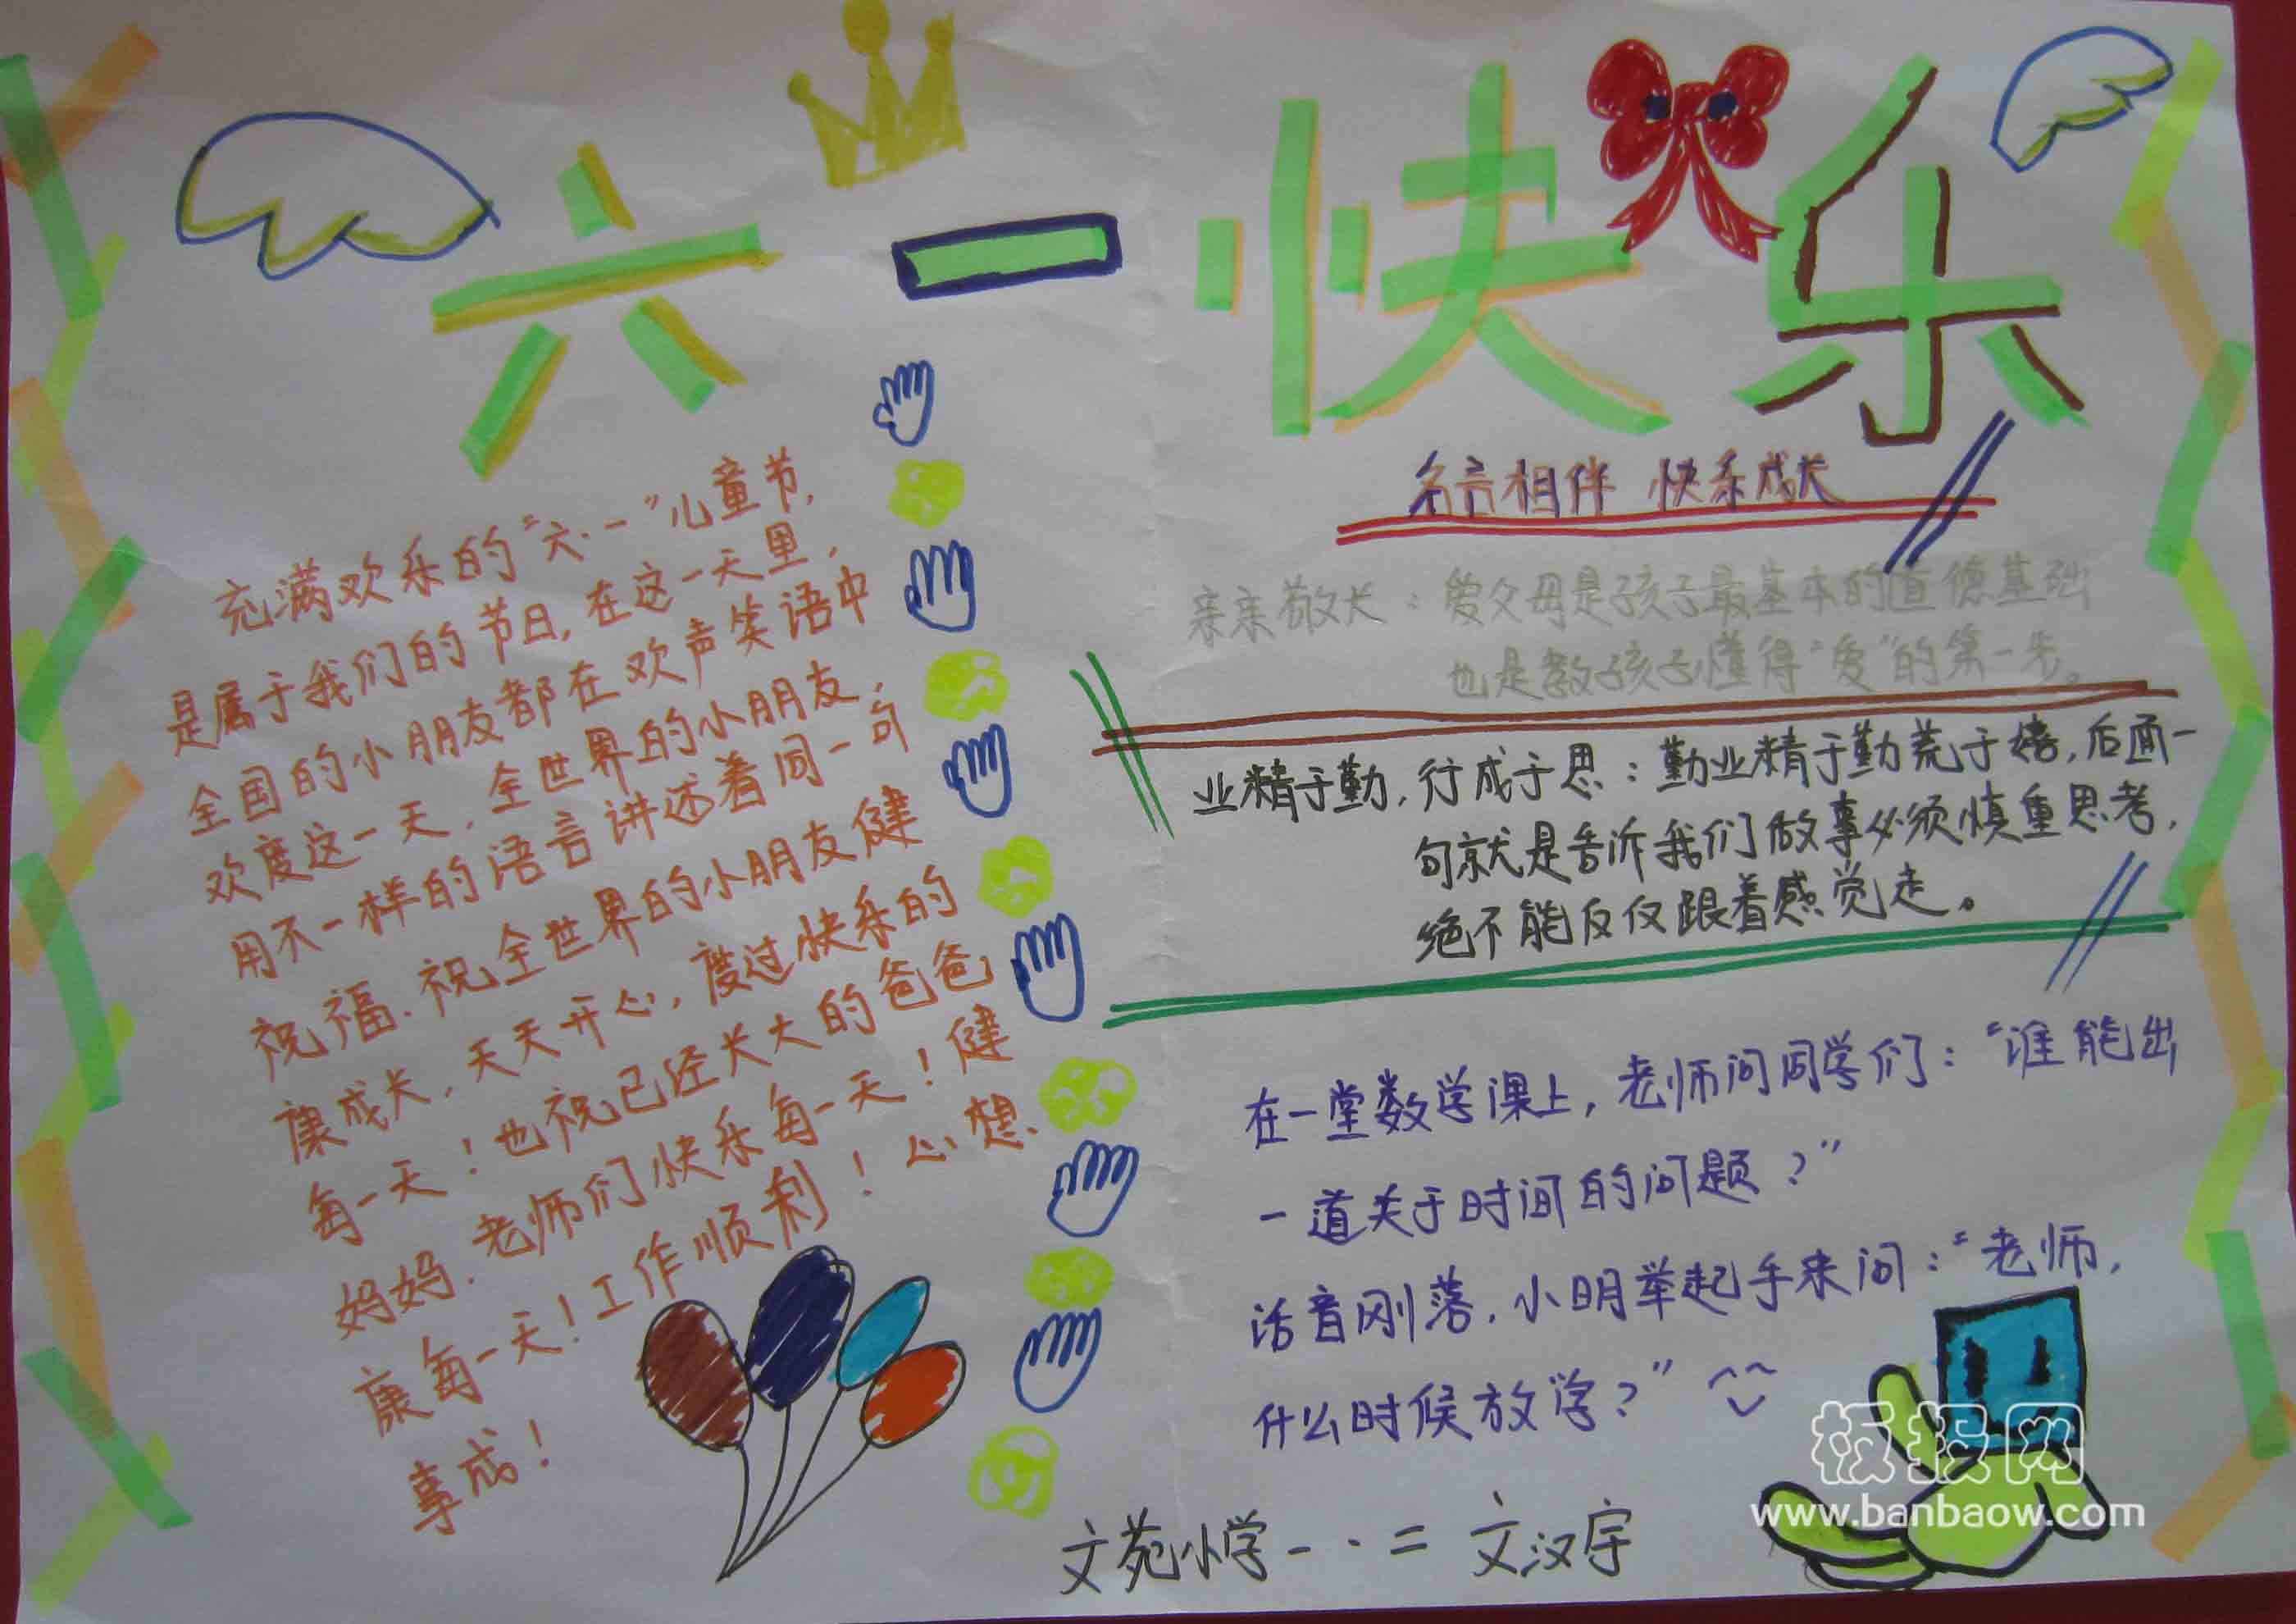 六一快乐
充满欢乐的“六·一”儿童节，
是属于我们的节日，在这一天里，
全国的小朋友都在欢声笑语中
欢度这一天，全世界的小朋友，
用不一样的语言讲述着同一句
祝福.祝全世界的小朋友健
康成长，天天开心，度过快乐的
每一天！也祝已经长大的爸爸
妈妈.老师们快乐每一天！健
康每一天！工作顺利！心想
事成！
名言相伴 快乐成长
亲亲敬长：爱父母是孩子最基本的道德基础
也是教孩子懂得“爱”的第一步。
业精于勤，行成于思：勤业精于勤荒于嬉，后面一
句就是告诉我们做事必须慎重思考，
绝不能仅仅跟着感觉走。
在一堂数学课上，老师问同学们：“谁能出
一道关于时间的问题？”
话音刚落，小明举起手来问：“老师，
什么时候放学？”
文苑小学一·二 文汉宇
板报网
www.banbaow.com